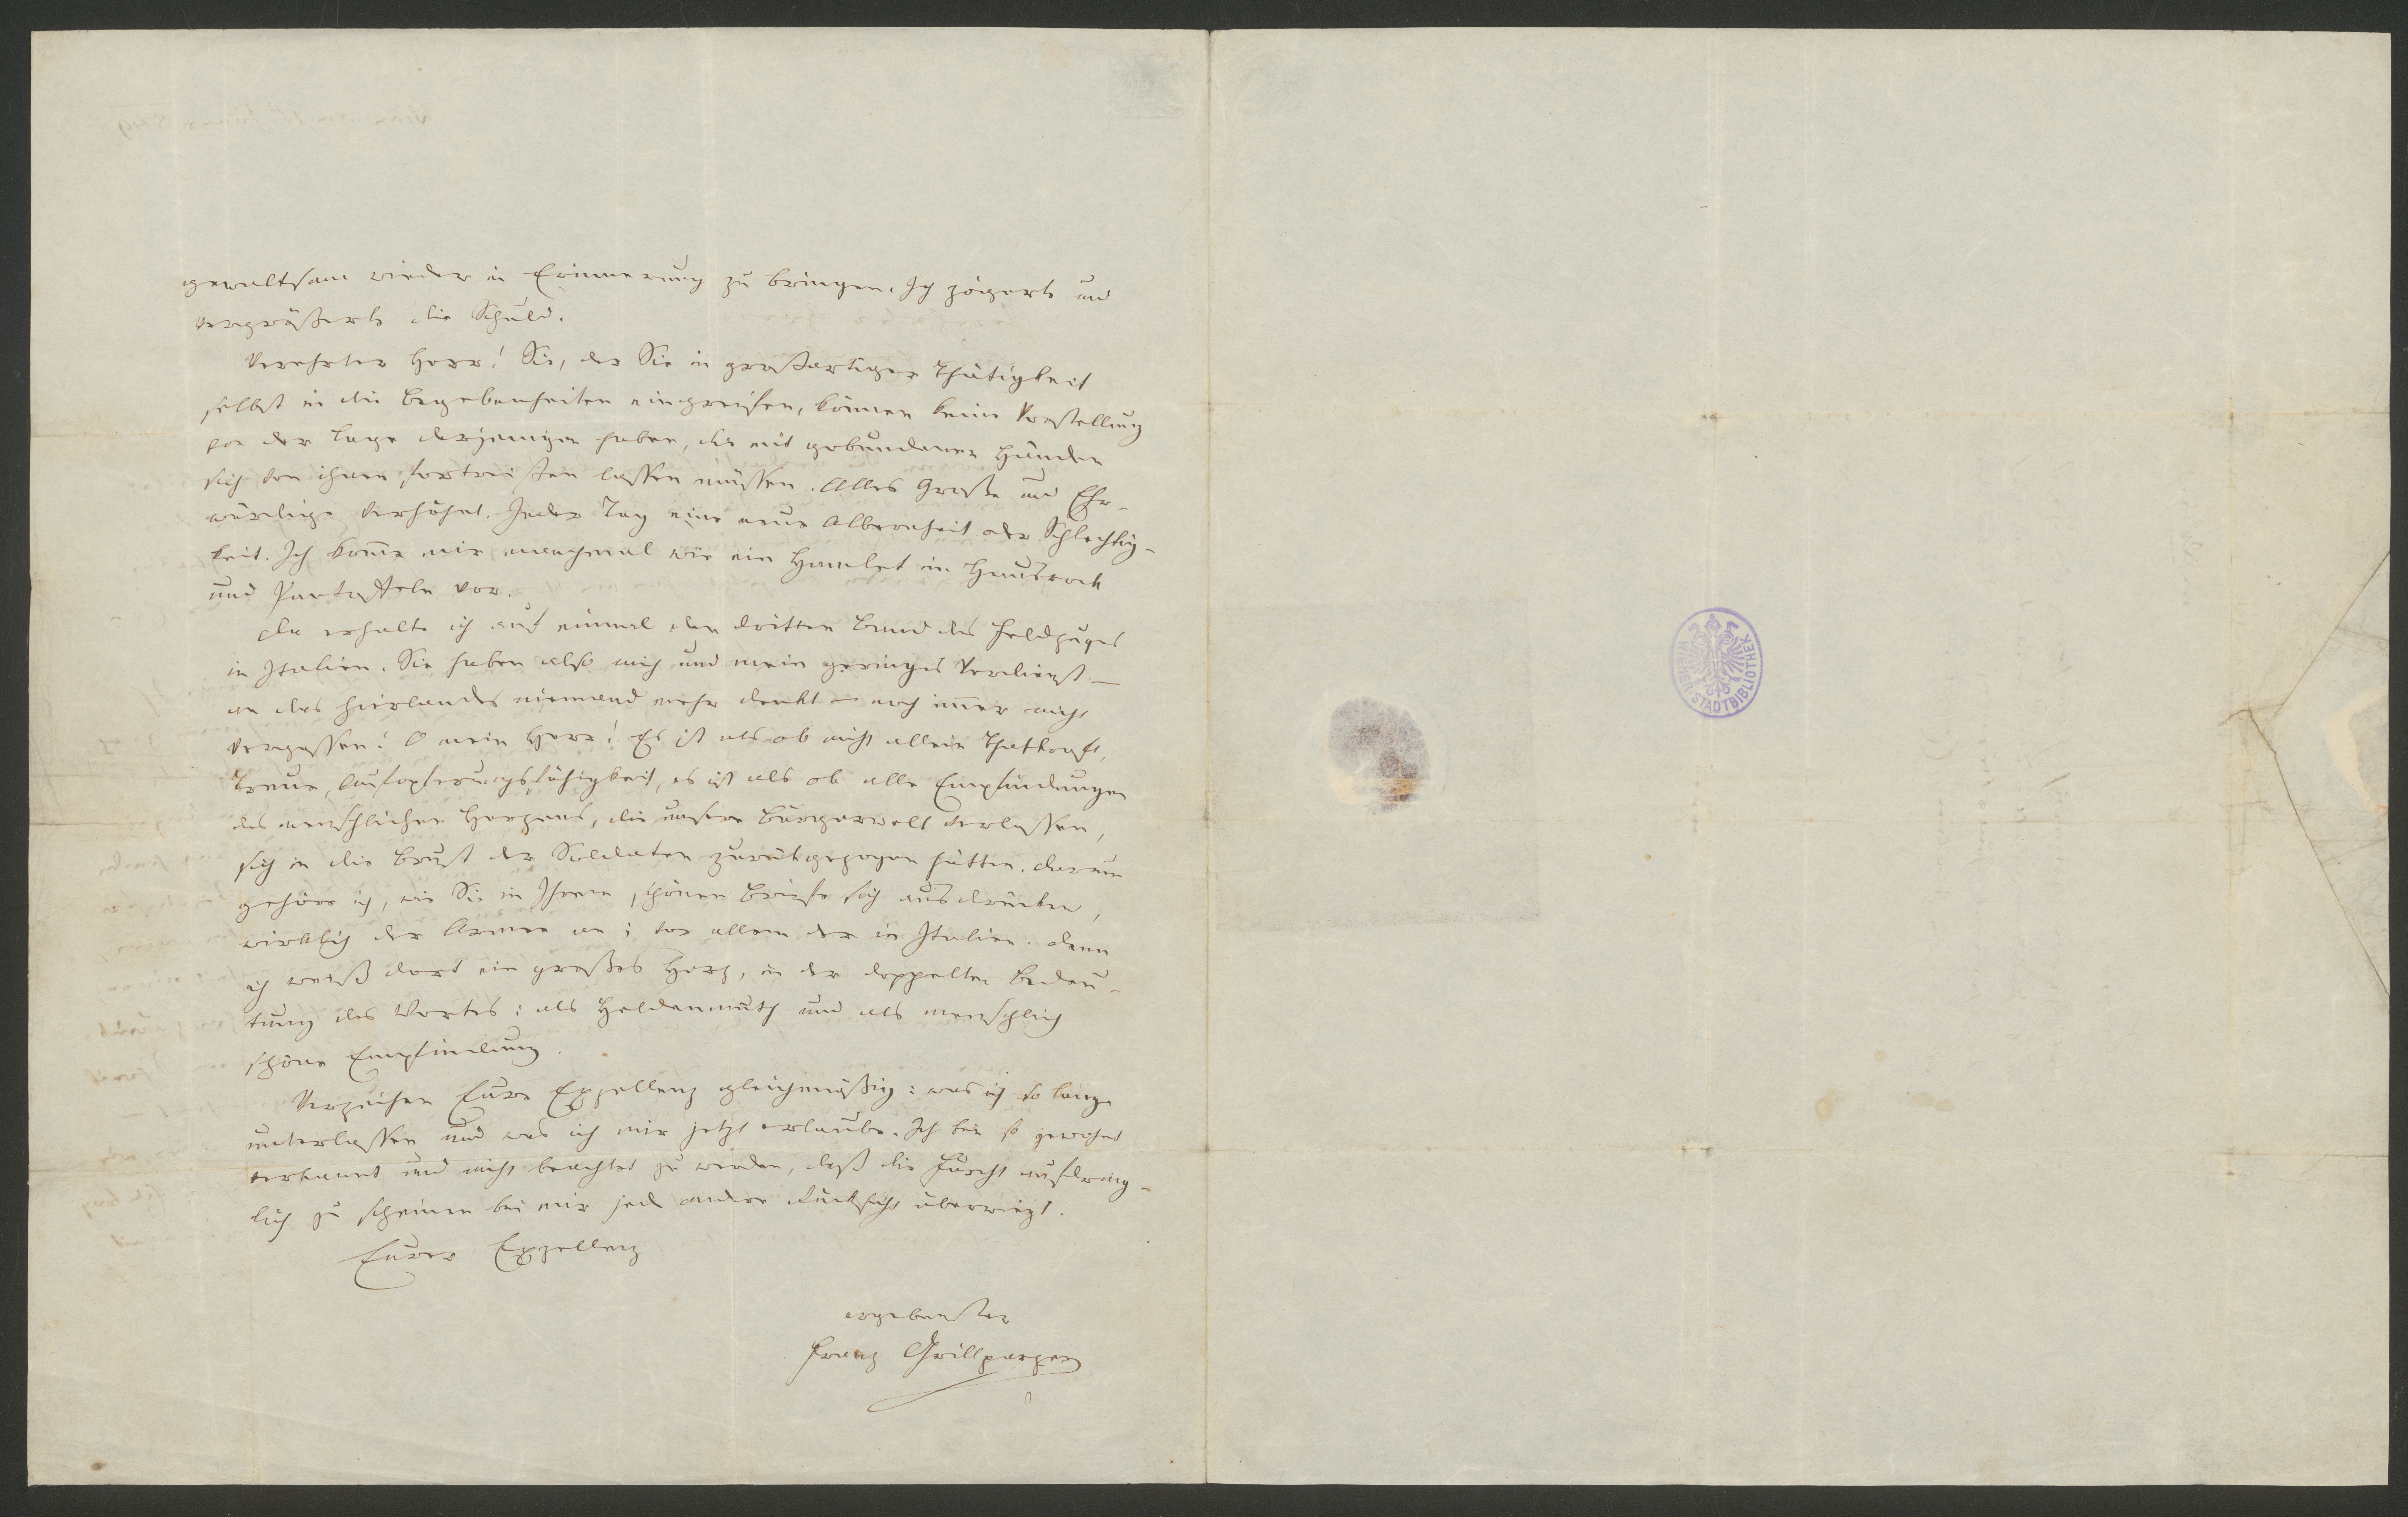 gewaltsam wieder in Erinnerung zu bringen. Ich zögerte und
vergrößerte die Schuld.
Verehrter Herr! Sie, der Sie in großartiger Thätigkeit
selbst in die Begebenheiten eingreifen, können keine Vorstellung
von der Lage derjenigen haben, die mit gebundenen Händen
sich von ihnen fortreißen lassen müssen. Alles Große und Ehr-
würdige verhöhnt. Jeder Tag eine neue Albernheit oder Schlechtig-
keit. Ich kom̄e mir manchmal wie ein Hamlet in Hausrock
und Pantoffeln vor.
Da erhalte ich auf einmal den dritten Band des Feldzuges
in Italien. Sie haben also mich und mein geringes Verdienst –
an das hierlandes niemand mehr denkt – noch im̄er nicht
vergessen! O mein Herr! Es ist als ob nicht allein Thatkraft,
Treue, Aufopferungsfähigkeit, es ist als ob alle Empfindungen
des menschlichen Herzens, die unsere Bürgerwelt verlassen,
sich in die Brust der Soldaten zurückgezogen hätten. Darum
gehöre ich, wie Sie in Ihrem schönen Briefe sich ausdrücken,
wirklich der Armee an; vor allem der in Italien. Denn
ich weiß dort ein großes Herz, in der doppelten Bedeu-
tung des Wortes: als Heldenmuth und als menschlich
schöne Empfindung.
Verzeihen Eure Exzellenz gleichmäßig: was ich so lange
unterlassen und was ich mir jetzt erlaube. Ich bin so gewohnt
verkannt und nicht beachtet zu werden, daß die Furcht aufdring-
lich zu scheinen bei mir jede andere Rücksicht überwiegt.
Eurer Exzellenz
ergebenster
Franz Grillparzer
WIENER STADTBIBLIOTHEK